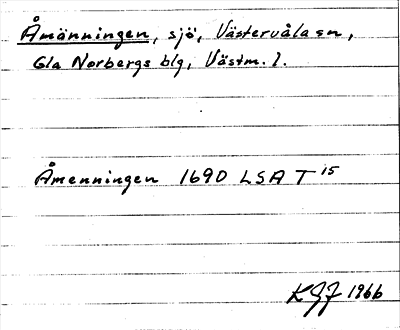 Åmänningen, sjö, Västervåla sn,
Gla Norbergs blg, Västm. l.
Åmenningen 1690 LSA T 15
KGJ 1966